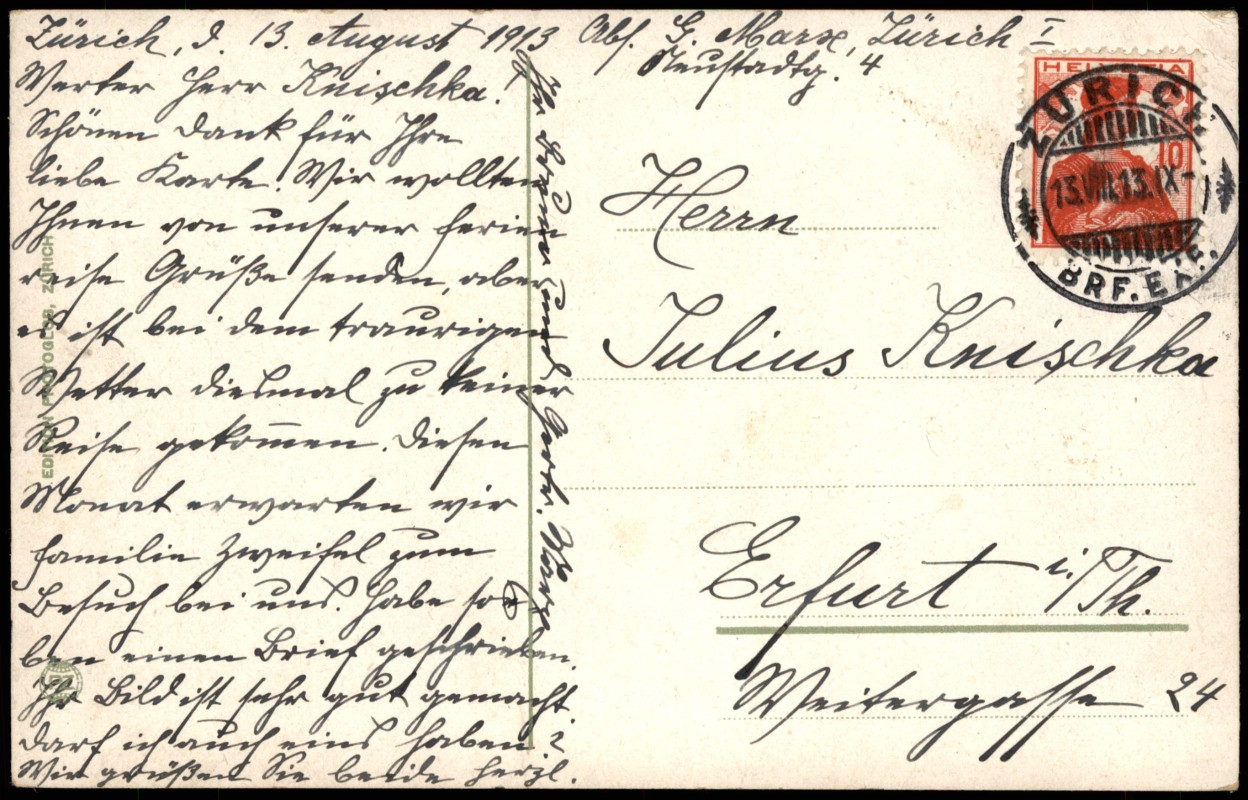 Zürich, d. 13. August 1913
Werter Herr Knischka!
Schönen Dank für Ihre
liebe Karte. Wir wollten
Ihnen von unserer Ferien
reise Grüße senden, aber
es ist bei dem traurigen
Wetter diesmal zu keiner
Reise gekommen. Diesen
Monat erwarten wir
Familie Zweifel zum
Besuch bei uns. Habe soe
ben einen Brief geschrieben.
Ihr Bild ist sehr gut gemacht.
Darf ich auch eins haben?
Wir grüßen Sie beide herzl.
Ihr und Gertr. Marx
Abs. G. Marx, Zürich I
Neustadtg. 4
HELVETIA
10
ZÜRICH
13.VIII.13.IX-
BRF.EX.
Herrn
Julius Knischka
Erfurt i./Th.
Weitergasse 24
EDITION PHOTOGLOB, ZÜRICH